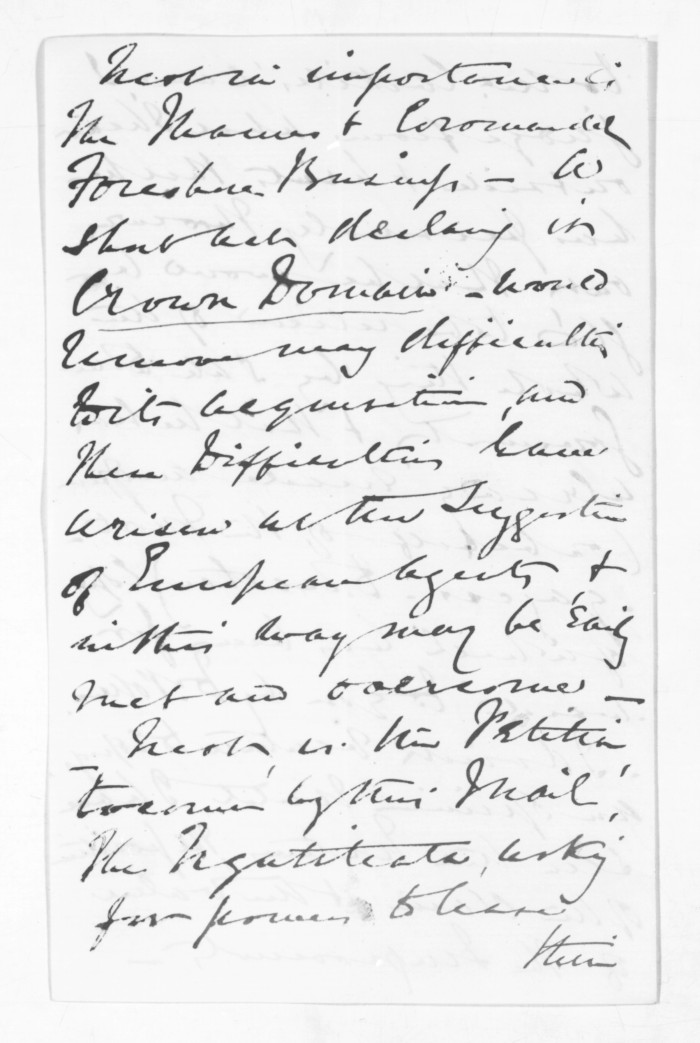 Next in importance is
the Thames & Coromandel
Foreshore Business - A
short act declaring it
Crown Domain - would
remove many difficulties
to its acquisition, and
these Difficulties have
arisen at the Suggestion
of European Agents, &
in this way may be Easily
met and overcome -
Next, is the Petition,
to come by this Mail,
the Ngatiteata, asking
for powers to lease
their